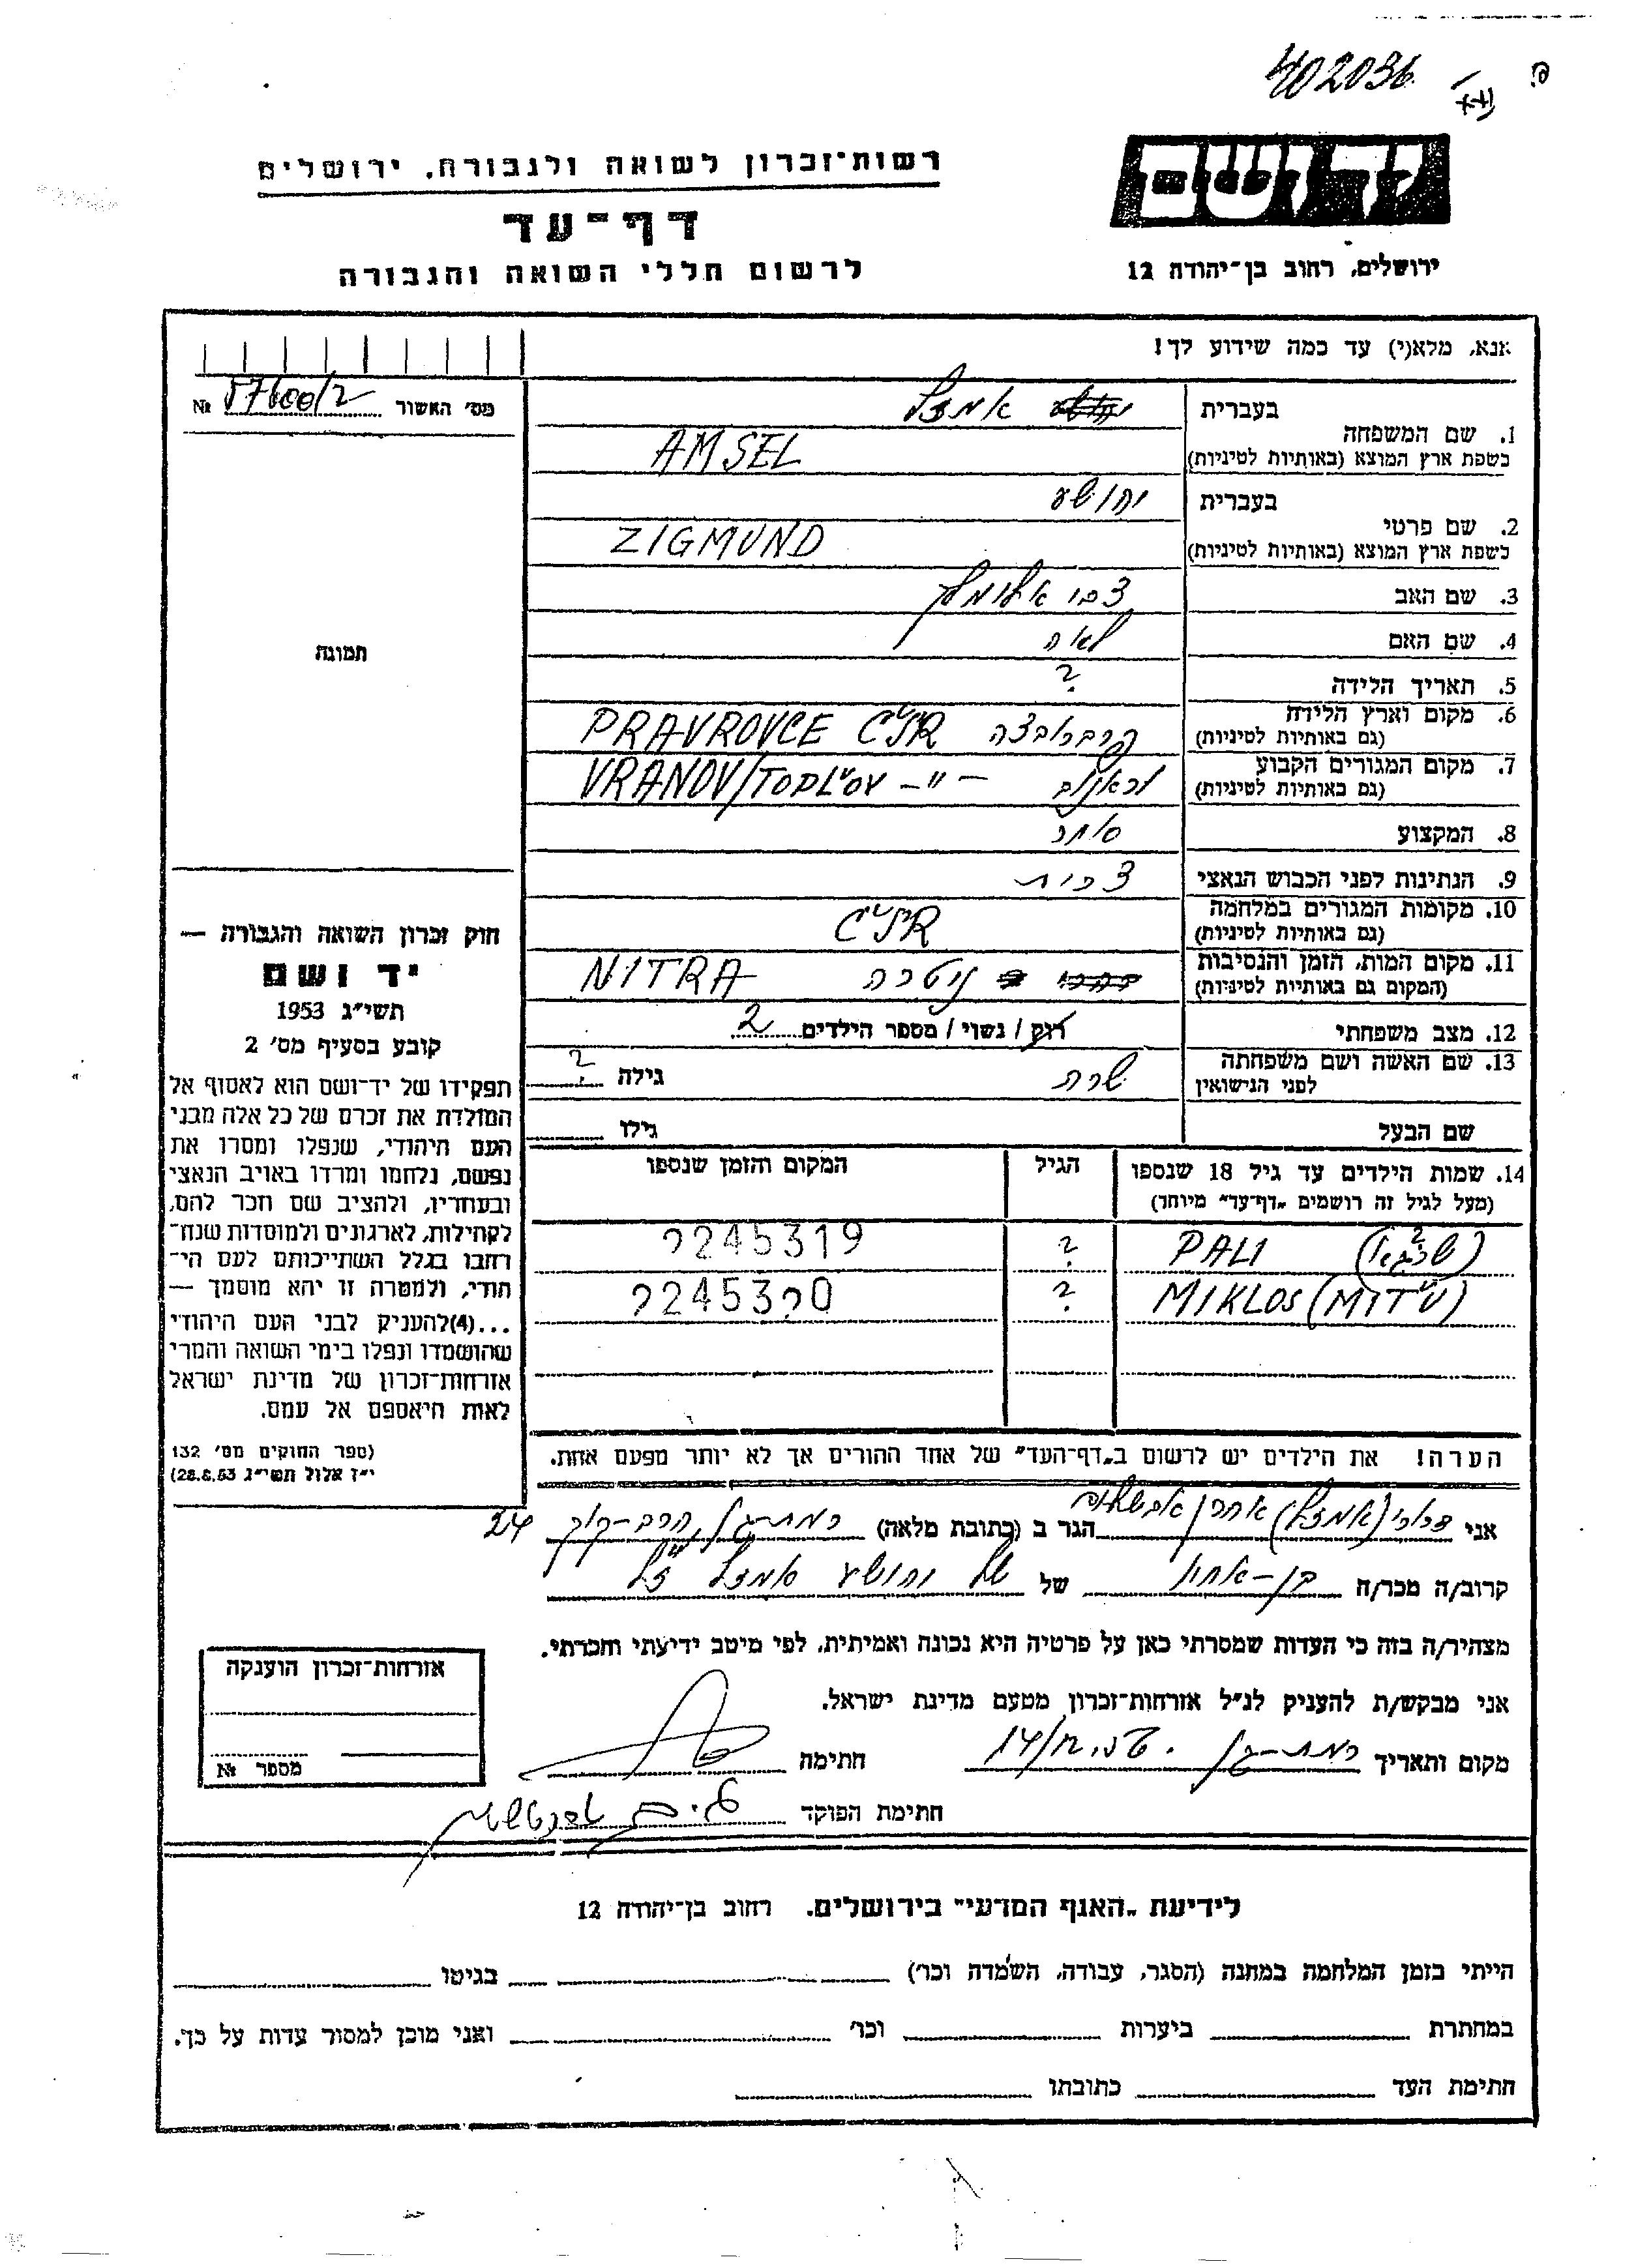 402036
יד ושם
ירושלים, רחוב בן־יהודה 12
רשות־זכרון לשואה ולגבורה, ירושלים
דף־עד
לרשום חללי השואה והגבורה
אנא, מלא(י) עד כמה שידוע לך!
מס׳ האשור № 57600/2
תמונה
1. שם המשפחה בעברית אמזל
בשפת ארץ המוצא (באותיות לטיניות) AMSEL
2. שם פרטי בעברית יהושע
בשפת ארץ המוצא (באותיות לטיניות) ZIGMUND
3. שם האב צבי אלימלך
4. שם האם לאה
5. תאריך הלידה ?
6. מקום וארץ הלידה (גם באותיות לטיניות) PRAVROVCE ČSR
7. מקום המגורים הקבוע (גם באותיות לטיניות) VRANOV/TOPL'OV – " –
8. המקצוע סוחר
9. הנתינות לפני הכבוש הנאצי צ'כית
10. מקומות המגורים במלחמה (גם באותיות לטיניות) ČSR
11. מקום המות, הזמן והנסיבות (המקום גם באותיות לטיניות) ניטרה NITRA
12. מצב משפחתי רוק / נשוי / מספר הילדים 2
13. שם האשה ושם משפחתה לפני הנישואין שרה גילה ?
שם הבעל גילו
14. שמות הילדים עד גיל 18 שנספו הגיל המקום והזמן שנספו
(מעל לגיל זה רושמים „דף־עד״ מיוחד)
PALI ? 2245319
MIKLOS (MITU) ? 2245320
הערה! את הילדים יש לרשום ב„דף־העד״ של אחד ההורים אך לא יותר מפעם אחת.
חוק זכרון השואה והגבורה —
יד ושם
תשי״ג 1953
קובע בסעיף מס׳ 2
תפקידו של יד־ושם הוא לאסוף אל
המולדת את זכרם של כל אלה מבני
העם היהודי, שנפלו ומסרו את
נפשם, נלחמו ומרדו באויב הנאצי
ובעוזריו, ולהציב שם וזכר להם,
לקהילות, לארגונים ולמוסדות שנח־
רבו בגלל השתייכותם לעם הי־
הודי, ולמטרה זו יהא מוסמך —
...(4)להעניק לבני העם היהודי
שהושמדו ונפלו בימי השואה והמרי
אזרחות־זכרון של מדינת ישראל
לאות היאספם אל עמם.
(ספר החוקים מס׳ 132
י״ז אלול תשי״ג 28.8.53)
אני דרורי (אמזל) אהרן אבשלום הגר ב (כתובת מלאה) רמת־גן, הרב־קוק 24
קרוב/ה מכר/ה בן–אחיו של של יהושע אמזל ז"ל
מצהיר/ה בזה כי העדות שמסרתי כאן על פרטיה היא נכונה ואמיתית, לפי מיטב ידיעתי והכרתי.
אני מבקש/ת להעניק לנ״ל אזרחות־זכרון מטעם מדינת ישראל.
מקום ותאריך רמת–גן חתימה
חתימת הפוקד
אזרחות־זכרון הוענקה
מספר №
לידיעת „האגף המדעי״ בירושלים, רחוב בן־יהודה 12
הייתי בזמן המלחמה במחנה (הסגר, עבודה, השמדה וכו׳) בגיטו
במחתרת ביערות וכו׳ ואני מוכן למסור עדות על כך.
חתימת העד כתובתו